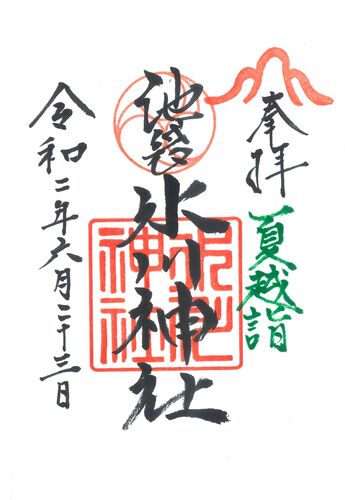 奉拝
夏越詣
池袋氷川神社
氷川
神社
令和二年六月二十三日